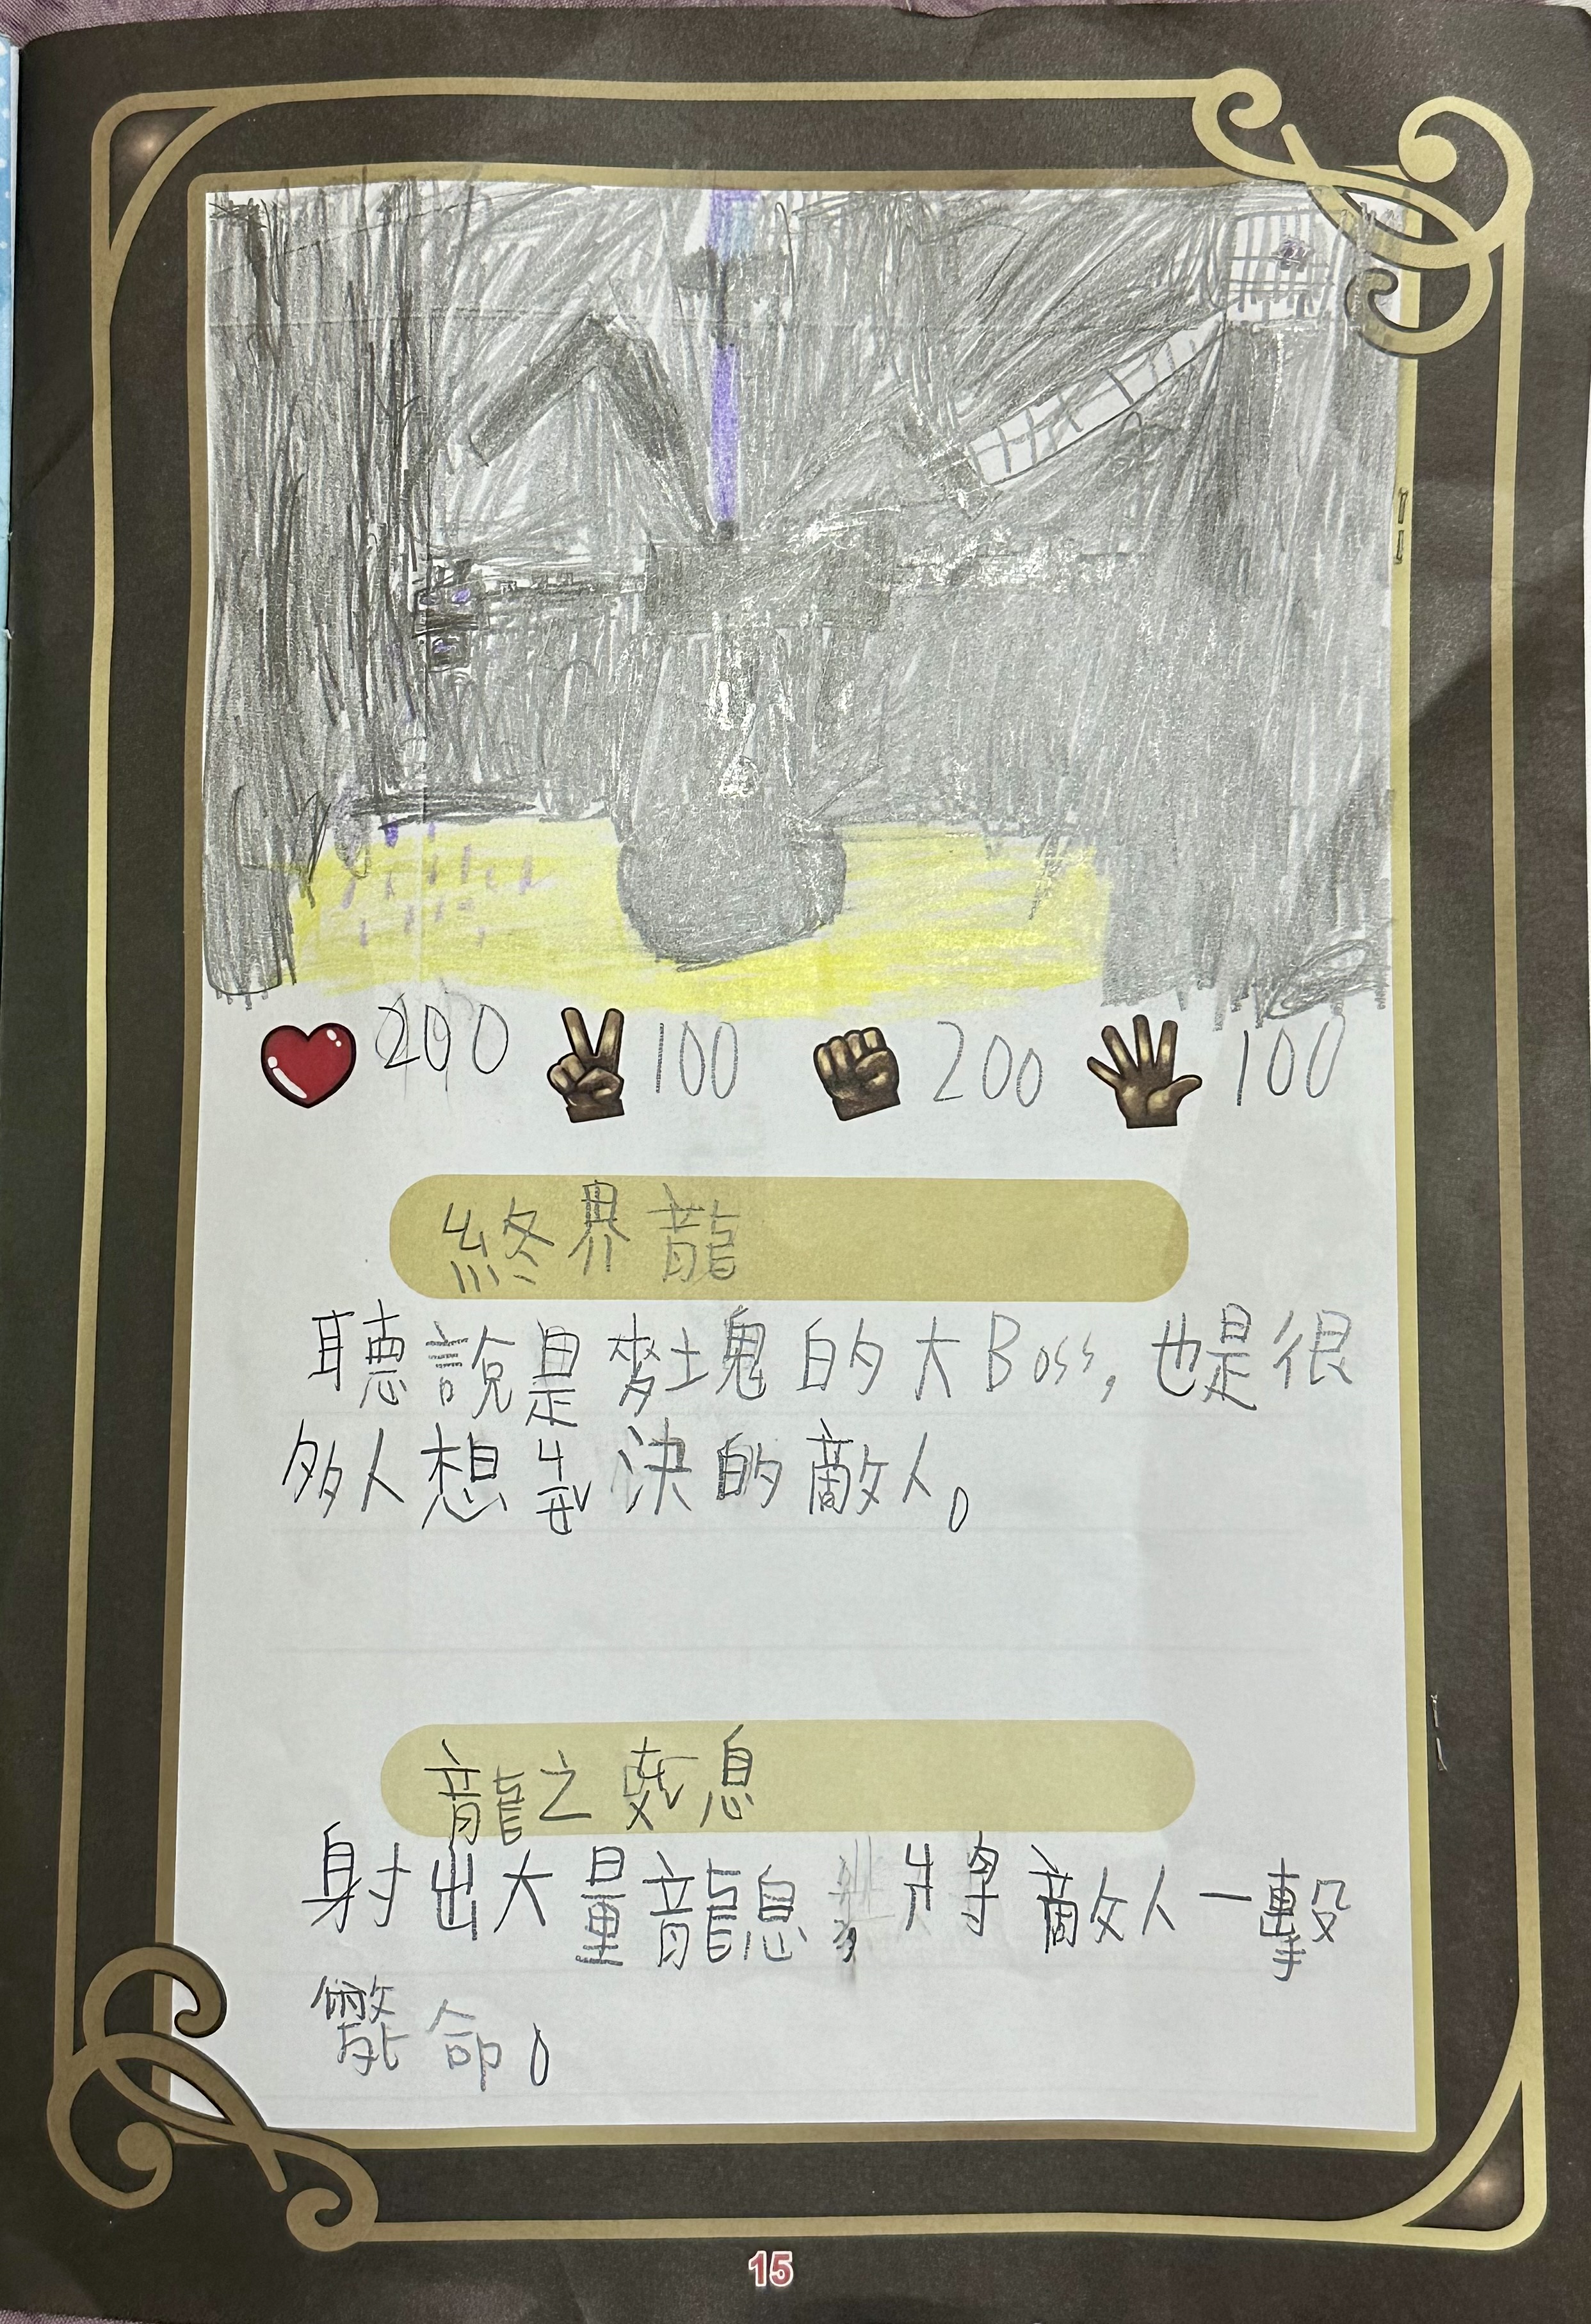 200 100 200 100
終界龍
聽說是麥塊的大Boss,也是很
多人想 決的敵人。
龍之 息
射出大量龍息 將敵人一擊
斃命。
15